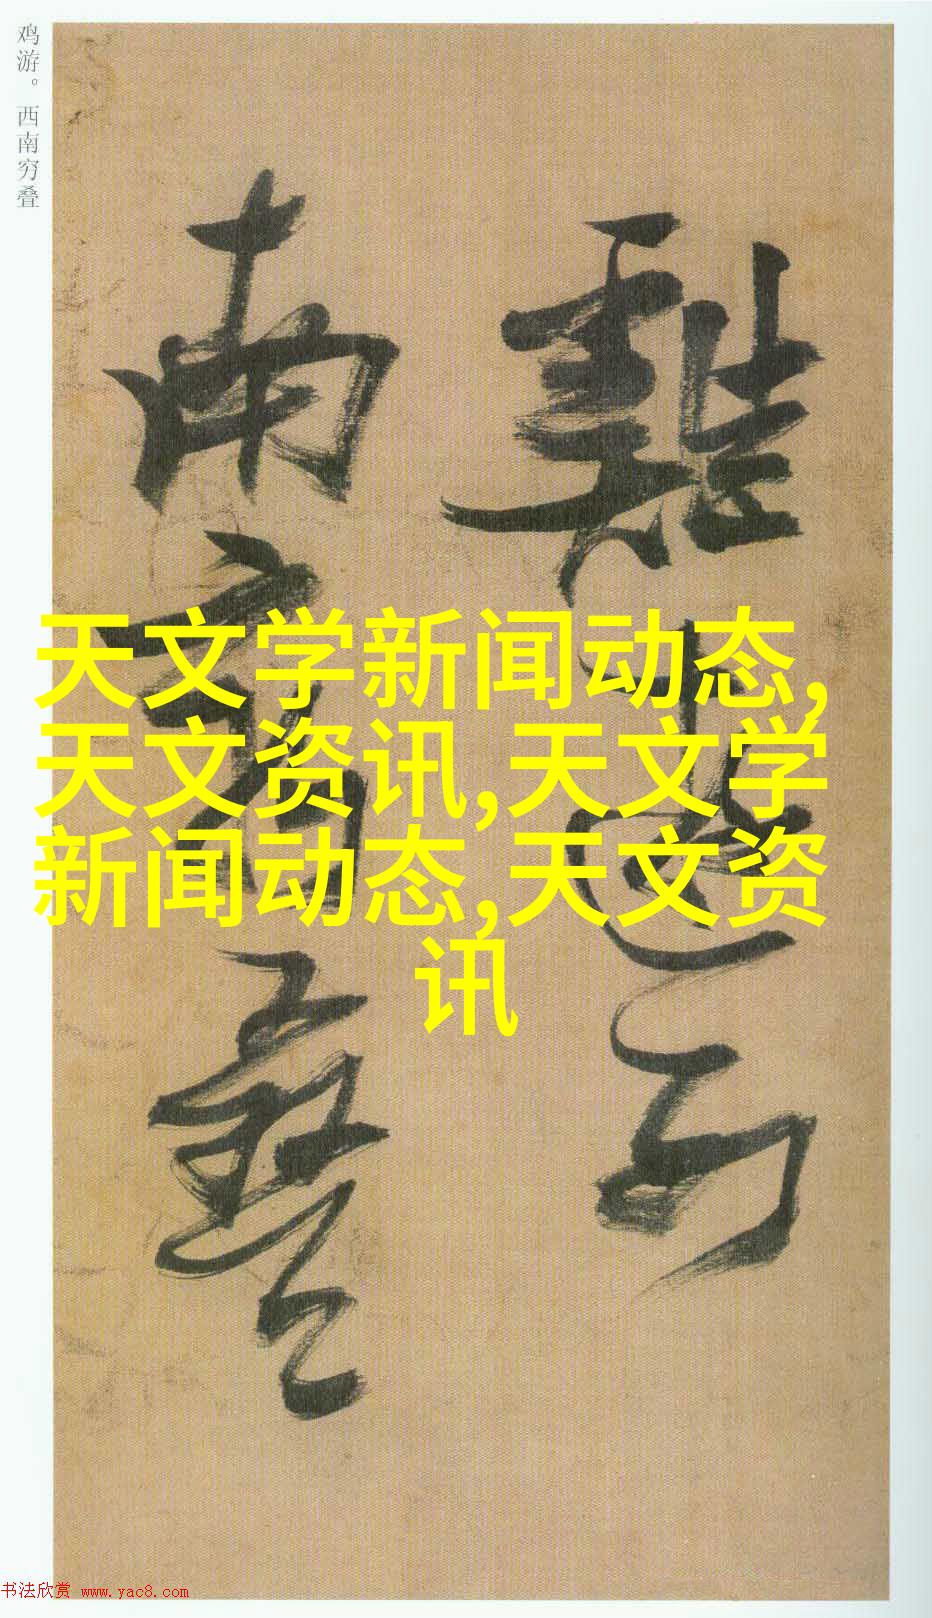 鸡游。西南穷叠
雞遊西
南窮疊
天文学新闻动态,
天文资讯,天文学
新闻动态,天文资
讯
书法欣赏 www.yac8.com